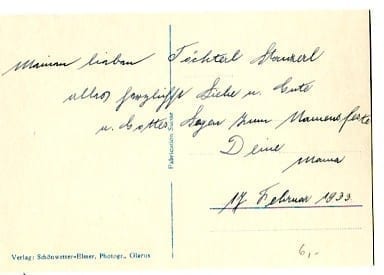 Meinen lieben Töchterl
alles herzlichst Liebe u. Gute
u. Gottes Segen zum Namensfeste
Deine
Mama
17 Februar 1933.
Fabrication Suisse
Verlag: Schönwetter-Elmer, Photogr., Glarus
6,-